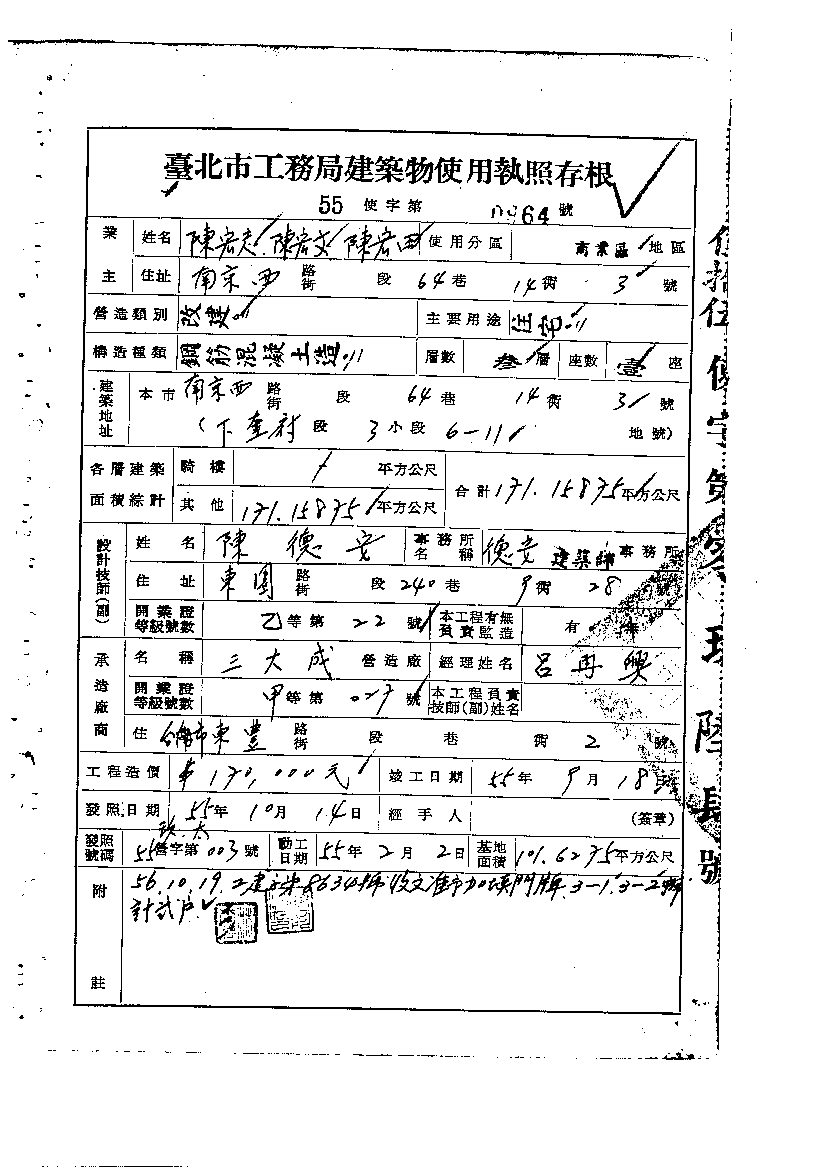 臺北市工務局建築物使用執照存根
55 使字第 0964 號
業主 姓名 陳宏 陳宏文 陳宏 使用分區 商業區 地區
住址 南京西 路街 段 64 巷 14 衖 3 號
營造類別 改建 主要用途 住宅
構造種類 鋼筋混凝土造 層數 叁層 座數 壹座
建築地址 本市 南京西 路街 段 64 巷 14 衖 3 號
(下奎府 段 3 小段 6-11 地號)
各層建築面積綜計 騎樓 / 平方公尺 合計 171.15875 平方公尺
其他 171.15875 平方公尺
設計技師(副) 姓名 陳德安 事務所名稱 德安建築師事務所
住址 東園 路街 段 240 巷 9 衖 28 號
開業證等級號數 乙等第 22 號 本工程有無負責監造 有
承造廠商 名稱 三大成 營造廠 經理姓名 呂再興
開業證等級號數 甲等第 027 號 本工程負責技師(副)姓名
住 台南市東豐 路街 段 巷 衖 2 號
工程造價 170,000元 竣工日期 55年 9月 18日
發照日期 55年 10月 14日 經手人 (簽章)
發照號碼 55 營字第 003 號 動工日期 55年 2月 2日 基地面積 101.6275 平方公尺
附註 56.10.19. 8634號收文准予加 門牌 3-1 3-2號
計弍戶
伍拾伍使字第零玖陸肆號